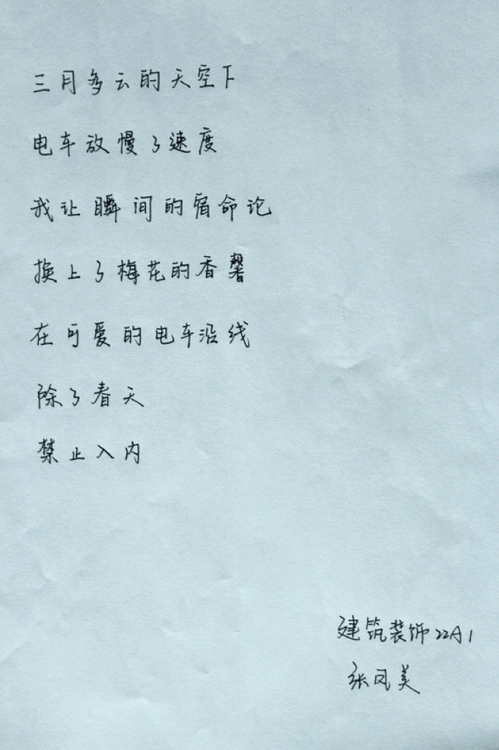 三月多云的天空下
电车放慢了速度
我让瞬间的宿命论
换上了梅花的香馨
在可爱的电车沿线
除了春天
禁止入内
建筑装饰22A1
张凤美